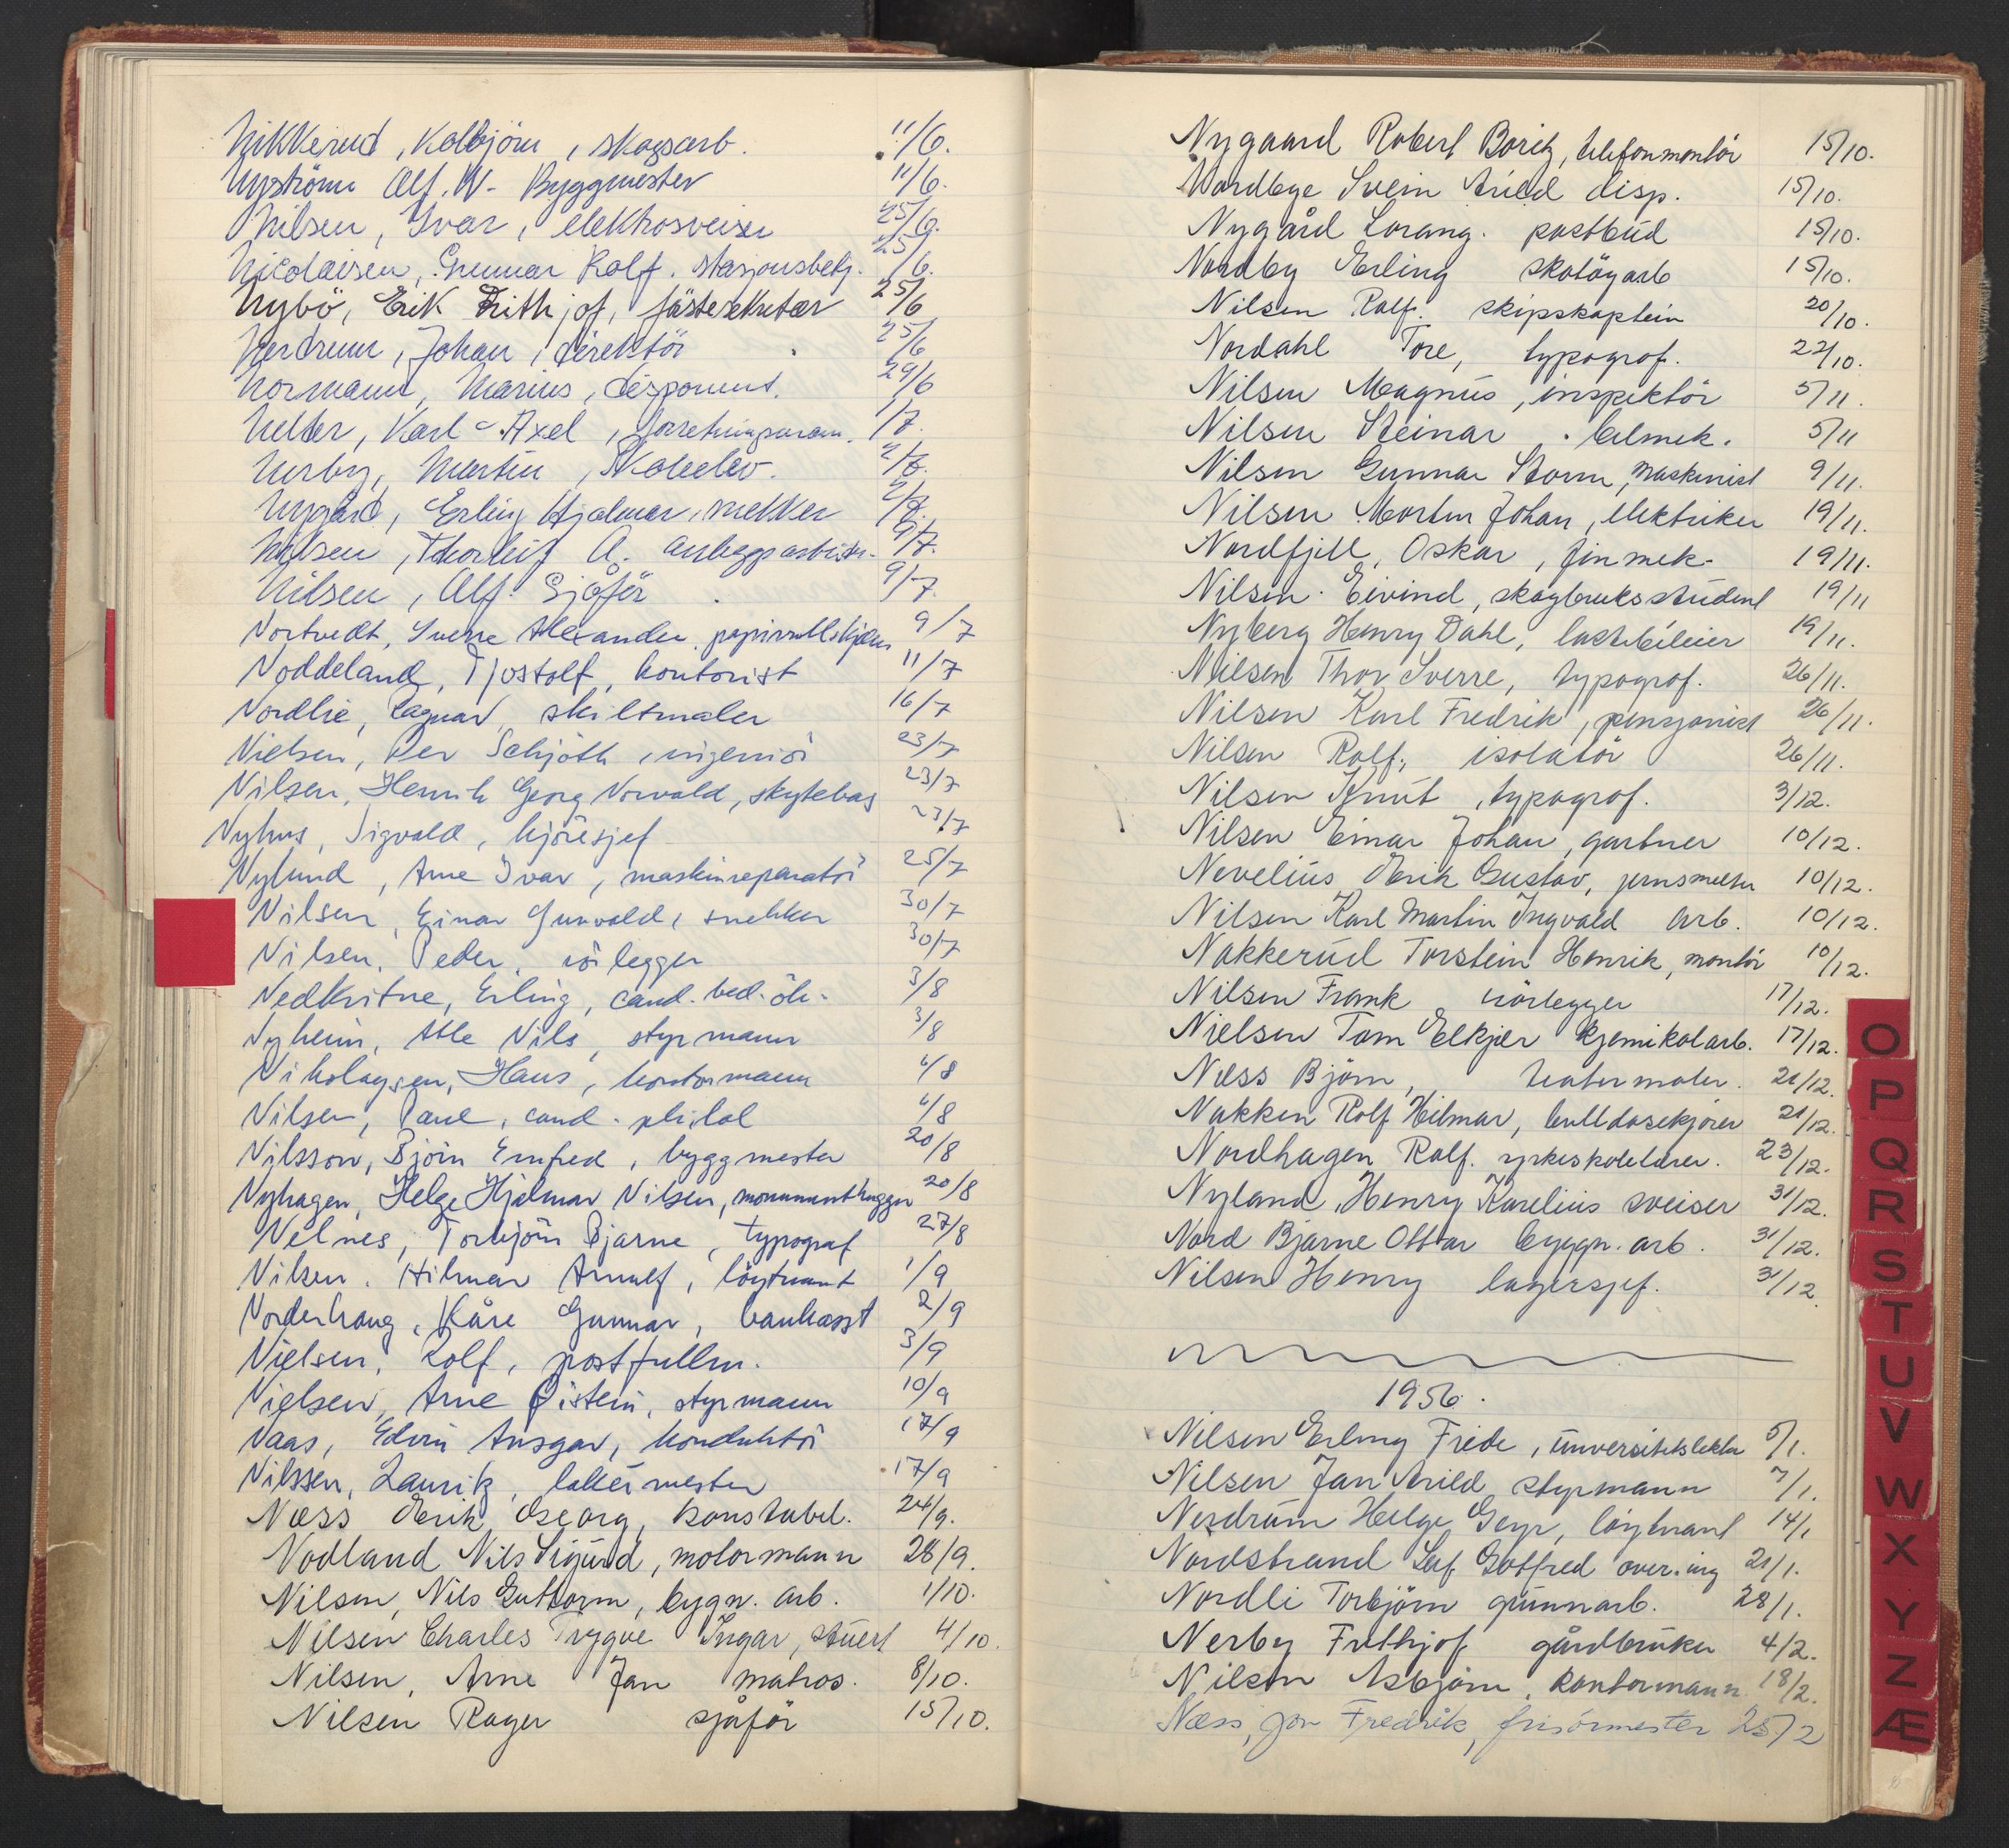 Nikkerud, Kolbjörn, skogsarb. 11/6.
Nyström Alf. W- Byggmester 11/6.
Nilsen, Ivar, elektrosveiser 25/6.
Nicolaisen, Gunnar Rolf. stasjonsbetj. 25/6.
Nybö, Erik Frithjof, förstesekretær 25/6
Nerdrum, Johan, direktör 25/6
Normann, Marius, disponent. 29/6
Karl-Axel, 1/7.
Nerby, Martin, Skoleelev. 2/7.
Nygård, Erling Hjalmar, snekker 2/7.
Nilsen, Thorleif A. anleggsarbeider. 9/7.
Nilsen, Alf. Sjåför 9/7.
Nortvedt, Sverre Alexander, 9/7
Noddeland, Tjostolf, kontorist 11/7
Nordlie, Ragnar, skiltmaler 16/7
Nielsen, Per Schjöth, ingeniör 23/7
Nilsen, Henrik Georg Norvald, skytebas 23/7
Nyhus, Sigvald, kjöresjef 23/7
Nylund, Arne Ivar, maskinreparatör 25/7
Nilsen, Einar Gunvald, snekker 30/7
Nilsen, Peder, rörlegger 30/7
Nedkvitne, Erling, cand. bed. ök. 3/8
Nyheim, Atle Nils, styrmann 3/8
Nikolaysen, Hans, kontormann 6/8
Nilsen, Paul, cand. philol 6/8
Nilsson, Björn Emfred, byggmester 20/8
Nyhagen, Helge Hjelmar Nilsen, monumenthugger 20/8
Nelnes, Torbjörn Bjarne, typograf 27/8
Nilsen. Hilmar Arnulf, löytnant 1/9
Norderhaug, Kåre Gunnar, bankasst 2/9
Nielsen, Rolf, postfullm. 3/9
Nielsen, Arne Øistein, styrmann 10/9
Naas, Edvin Ansgar, konduktör 17/9
Nilssen, Lauritz, lakkérmester 17/9
Næss Erik Georg, konstabel. 24/9.
Nodland Nils Sigurd, motormann 28/9.
Nilsen, Nils Guttorm, bygn. arb. 1/10.
Nilsen Charles Trygve Ingar, stuert 4/10.
Nilsen, Arne Jan matros. 8/10.
Nilsen Roger sjåför 15/10.
Nygaard Robert Boritz, telefonmontör 15/10.
Nordbye Svein Arild disp. 15/10.
Nygård Lorang. postbud 15/10.
Nordby Erling skotöyarb 15/10.
Nilsen Rolf. skipskaptein 20/10.
Nordahl Tore, typograf. 22/10.
Nilsen Magnus, inspektör 5/11.
Nilsen Steinar. bilmek. 5/11
Nilsen Gunnar Storm, maskinist 9/11.
Nilsen Morten Johan, elektriker 19/11.
Nordfjell, Oskar, finmek. 19/11.
Nilsen Eivind, skogbruksstudent 19/11
Nyberg Henry Dahl, lastebileier 19/11.
Nilsen Thor Sverre, typograf. 26/11.
Nilsen Karl Fredrik, pensjonist 26/11.
Nilsen Rolf, isolatör 26/11.
Nilsen Knut, typograf. 3/12.
Nilsen Einar Johan, gartner 10/12.
Nevelius Erik Gustav, jernsmelter 10/12.
Nilsen Karl Martin Ingvald arb. 10/12.
Nakkerud Torstein Henrik, montör 10/12.
Nilsen Frank rörlegger 17/12.
Nielsen Tom Elkjer kjemikalarb. 17/12.
Næss Björn, teatermaler. 21/12.
Nakken Rolf Hilmar, bulldosekjörer 21/12.
Nordhagen Rolf. yrkesskolelærer. 23/12.
Nyland, Henry Karelius sveiser 31/12.
Nord Bjarne Ottar bygn. arb. 31/12.
Nilsen Henry lagersjef. 31/12.
1956.
Nilsen Erling Frede, universitetslektor 5/1.
Nilsen Jan Arild styrmann 7/1.
Nerdrum Helge Geyr, löytnant 14/1
Nordstrand Leif Gotfred over.ing 21/1.
Nordli Torbjörn grunnarb. 28/1.
Nerby Frithjof gårdbruker 4/2.
Nilsen Asbjörn, kontormann 18/2.
Næss, Jon Fredrik, frisörmester 25/2
O
P
Q
R
S
T
U
V
W
X
Y
Z
Æ